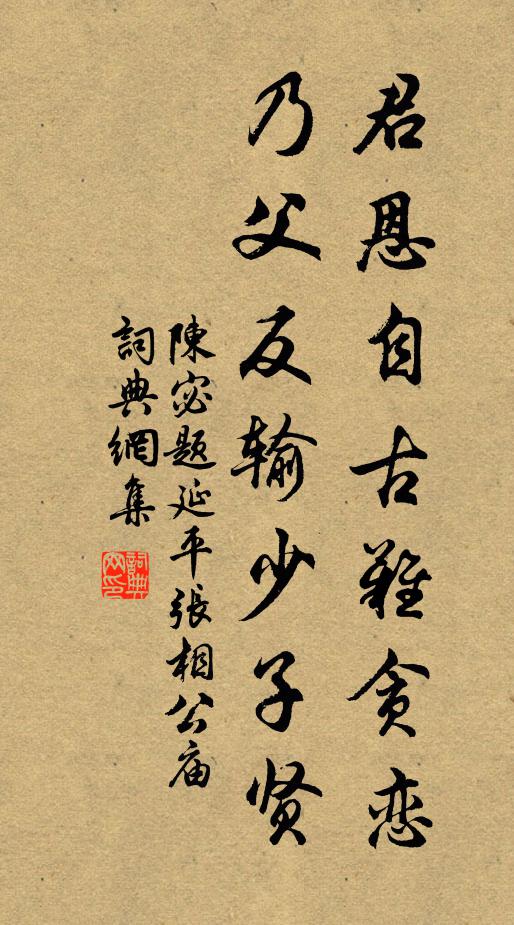 君恩自古难贪恋
乃父反输少子贤
陳宓题延平張相公庙
詞典網集
詞典网印